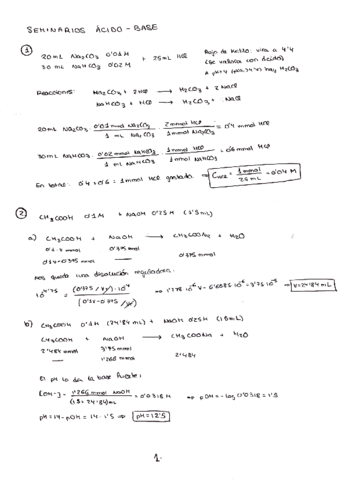 SEMINARIOS ÁCIDO - BASE
① 20 mL Na₂CO₃ 0'01 M + 25 mL HCl
30 mL NaHCO₃ 0'02 M
Rojo de metilo: vira a 4'4
(se valora con ácido)
A pH=4 hay H₂CO₃
Reacciones: Na₂CO₃ + 2HCl → H₂CO₃ + 2 NaCl
NaHCO₃ + HCl → H₂CO₃ + NaCl
20 mL Na₂CO₃ · 0'01 mmol Na₂CO₃ / 1 mL Na₂CO₃ · 2 mmol HCl / 1 mmol Na₂CO₃ = 0'4 mmol HCl
30 mL NaHCO₃ · 0'02 mmol NaHCO₃ / 1 mL NaHCO₃ · 1 mmol HCl / 1 mmol NaHCO₃ = 0'6 mmol HCl
En total: 0'4 + 0'6 = 1 mmol HCl gastado. ⇒ C_HCl = 1 mmol / 25 mL = 0'04 M
② CH₃COOH 0'1 M + NaOH 0'25 M (1'5 mL)
a) CH₃COOH + NaOH → CH₃COONa + H₂O
0'1·V mmol 0'375 mmol
0'1V-0'375 mmol 0'375 mmol
nos queda una disolución reguladora.
⇒ V=24'84 mL
b) CH₃COOH 0'1 M (24'84 mL) + NaOH 0'25 M (15 mL)
CH₃COOH + NaOH → CH₃COONa + H₂O
2'484 mmol 3'75 mmol
1'266 mmol 2'484
El pH lo da la base fuerte:
[OH-] = 1'266 mmol NaOH / (15+24'84) mL = 0'0318 M ⇒ pOH = -log (0'0318) = 1'5
pH = 14 - pOH = 14 - 1'5 ⇒ pH = 12'5
1.